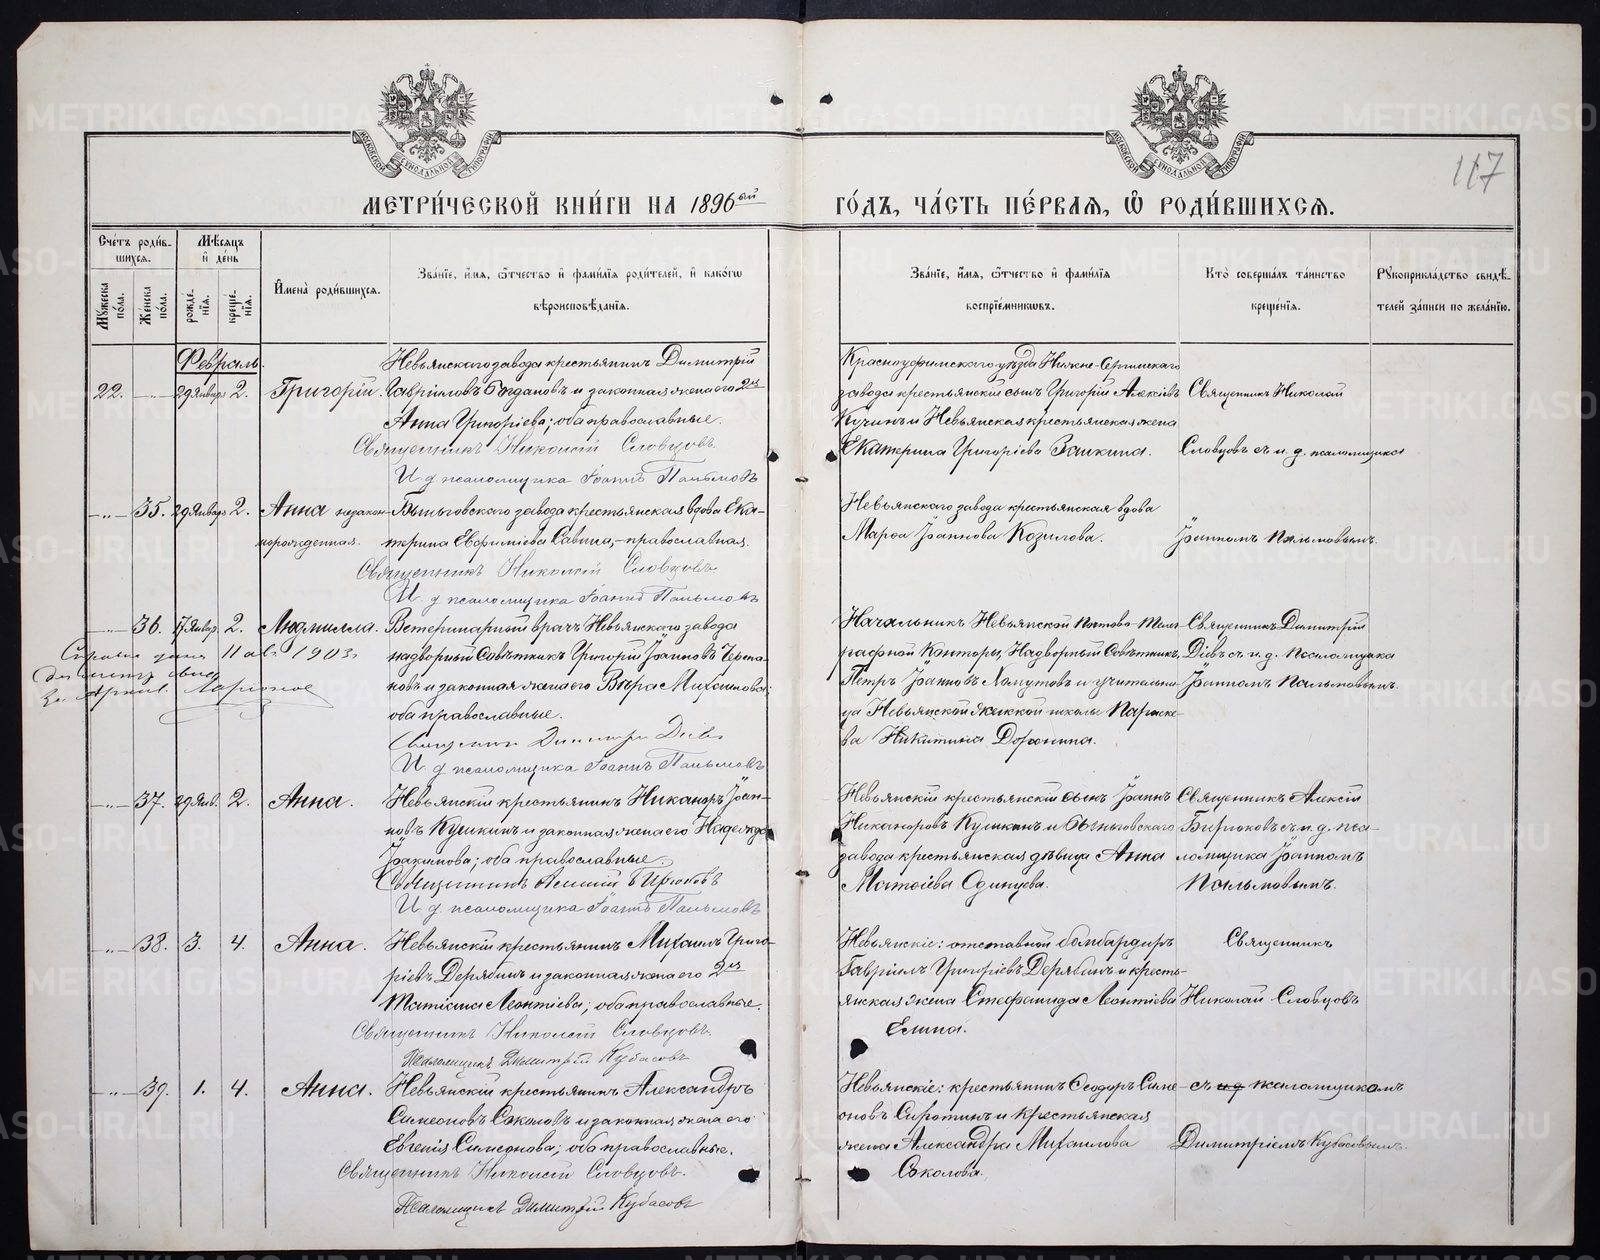 117
МЕТРИ́ЧЕСКОЙ КНИ́ГИ НА 1896ый ГО́ДЪ, ЧА́СТЬ ПЕ́РВАЯ, Ѡ РОДИ́ВШИХСЯ.
Сче́тъ роди́в-
шихся.
Мѣ́сяцъ
и́ де́нь
Мꙋ́жеска по́ла.
Же́нска по́ла.
рожде́-
нїя.
креще́-
нїя.
И҆мена̀ роди́вшихся.
Зва́нїе, и҆́мя, ѻ҆́тчество и҆ фами́лїя роди́телей, и҆ како́гѡ
вѣроисповѣ́данїя.
Зва́нїе, и҆́мя, ѻ҆́тчество и҆ фами́лїя
воспрїе́мниковъ.
Кто̀ соверша́лъ та́инство
креще́нїя.
Рꙋкоприкла́дство свидѣ́-
телей за́писи по жела́нїю.
Февраль.
22. -"- 29 Января 2. Григорій.
Невьянскаго завода крестьянинъ Димитрій
Гавріиловъ Богдановъ и законная жена его 2я
Анна Григоріева; оба православные.
Священникъ Николай Словцовъ
И д псаломщика Іоаннъ Пальмовъ
Красноуфимскаго уѣзда Нижне-Сергинскаго
завода крестьянскій сынъ Григорій Алексіевъ
Кучинъ и Невьянская крестьянская жена
Екатерина Григоріева Заикина.
Священникъ Николай
Словцовъ съ и. д. псаломщика
-"- 35. 29 Января 2. Анна незакон-
норожденная.
Быньговскаго завода крестьянская вдова Ека-
терина Евфиміева Савина, - православная.
Священникъ Николай Словцовъ
И д псаломщика Іоаннъ Пальмовъ
Невьянскаго завода крестьянская вдова
Марѳа Іоаннова Козилова.
Іоанномъ Пальмовымъ.
-"- 36. 17 Январ. 2. Людмилла.
11 ав. 1903г
Ветеринарный врачъ Невьянскаго завода
надворный Совѣтникъ Григорій Іоанновъ Черпа-
ковъ и законная жена его Вѣра Михаилова;
оба православные.
Священникъ Димитрій Діевъ
И д псаломщика Іоаннъ Пальмовъ
Начальникъ Невьянской Почтово-Теле-
графной Конторы, Надворный Совѣтникъ,
Петръ Іоанновъ Хомутовъ и учительни-
ца Невьянской женской школы Параске-
ва Никитина Доронина.
Священникъ Димитрій
Діевъ съ и. д. псаломщика
Іоанномъ Пальмовымъ.
-"- 37. 29 Янв. 2. Анна.
Невьянскій крестьянинъ Никаноръ Іоан-
новъ Кушкинъ и законная жена его Надежда
Іоакимова; оба православные.
Священникъ Алексій Бирюковъ
И д. псаломщика Іоаннъ Пальмовъ
Невьянскій крестьянскій сынъ Іоаннъ
Никаноровъ Кушкинъ и Быньговскаго
завода крестьянская дѣвица Анна
Матѳіева Одинцева.
Священникъ Алексій
Бирюковъ съ и. д. пса-
ломщика Іоанномъ
Пальмовымъ.
-"- 38. 3. 4. Анна.
Невьянскій крестьянинъ Михаилъ Григо-
ріевъ Дерябинъ и законная жена его 2я
Татіана Леонтіева; оба православные.
Священникъ Николай Словцовъ.
Псаломщикъ Димитрій Кубасовъ
Невьянскіе: отставной бомбардиръ
Гавріилъ Григоріевъ Дерябинъ и кресть-
янская жена Стефанида Леонтіева
Елина.
Священникъ
Николай Словцовъ
-"- 39. 1. 4. Анна.
Невьянскій крестьянинъ Александръ
Симеоновъ Соколовъ и законная жена его
Евгенія Симеонова; оба православные.
Священникъ Николай Словцовъ.
Псаломщикъ Димитрій Кубасовъ
Невьянскіе: крестьянинъ Ѳеодоръ Симе-
оновъ Сиротинъ и крестьянская
жена Александра Михаилова
Соколова.
съ и д псаломщикомъ
Димитріемъ Кубасовымъ.